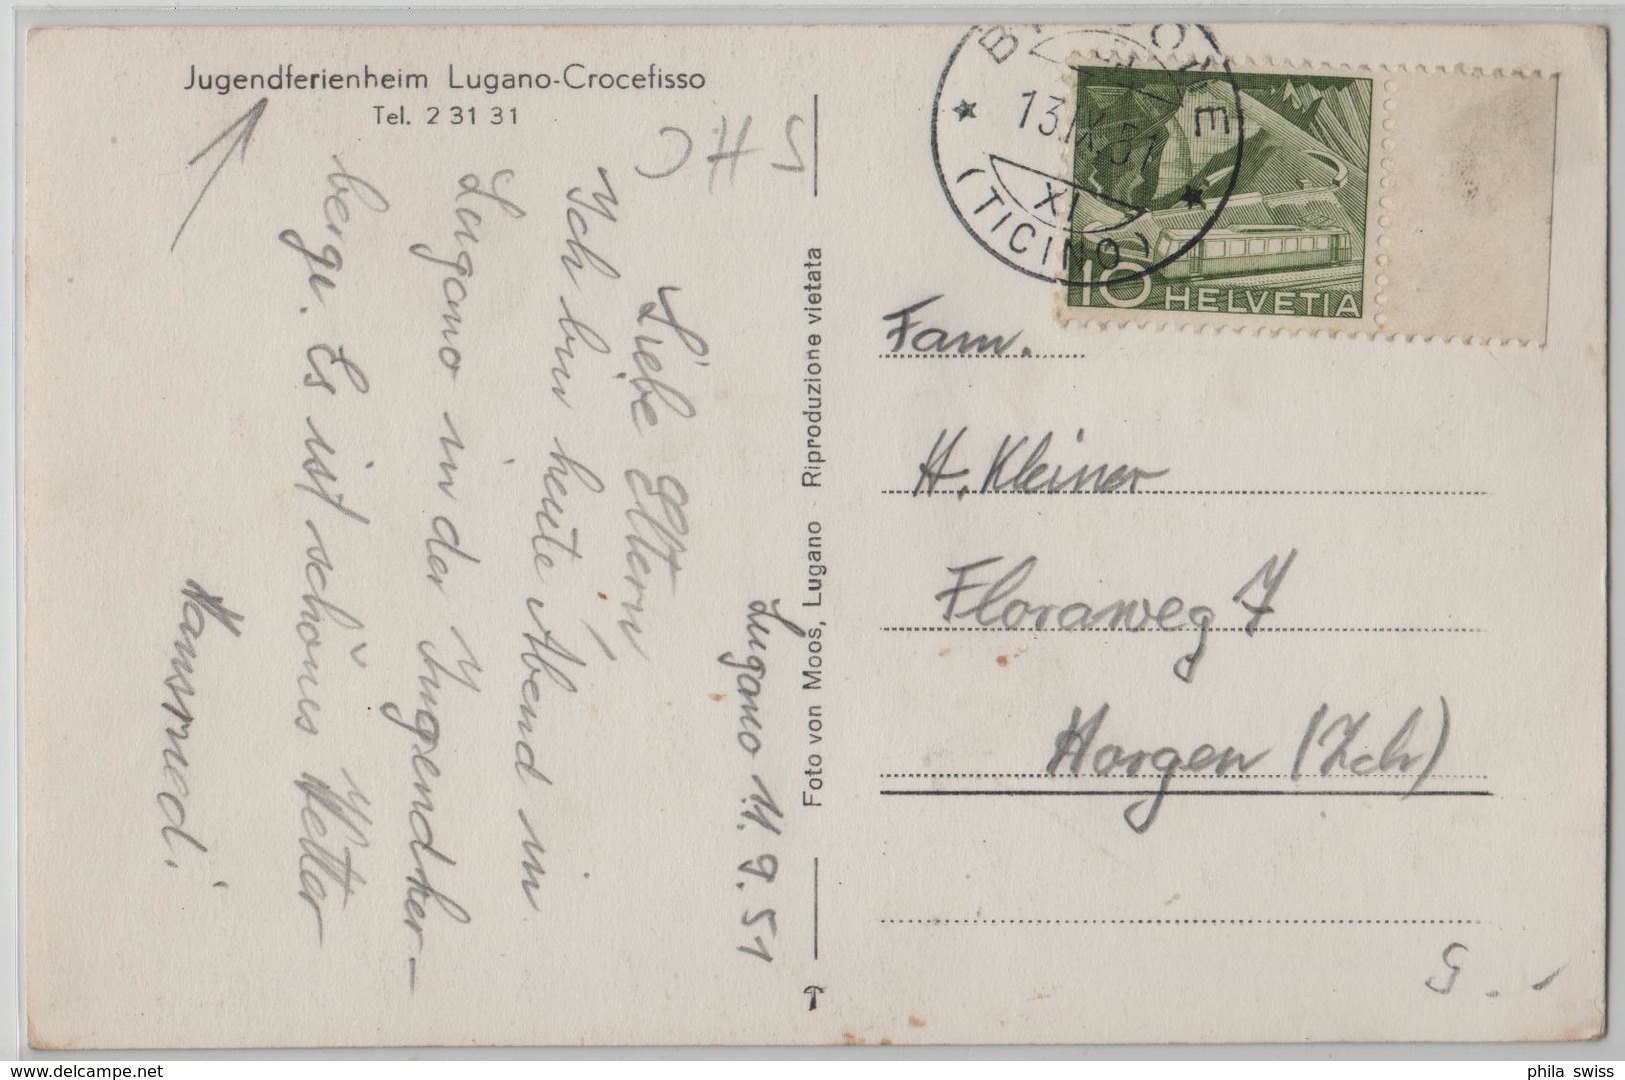 Jugendferienheim Lugano-Crocefisso
Tel. 2 31 31
Lugano 11. 9. 51
Liebe Eltern,
Ich bin heute Abend in
Lugano in der Jugendher-
berge. Es ist schönes Wetter
Hansruedi.
Foto von Moos, Lugano Riproduzione vietata
13.IX.51
XI
(TICINO)
10 HELVETIA
Fam.
H. Kleiner
Floraweg 7
Horgen (Zch)
phila swiss
delcampe.net